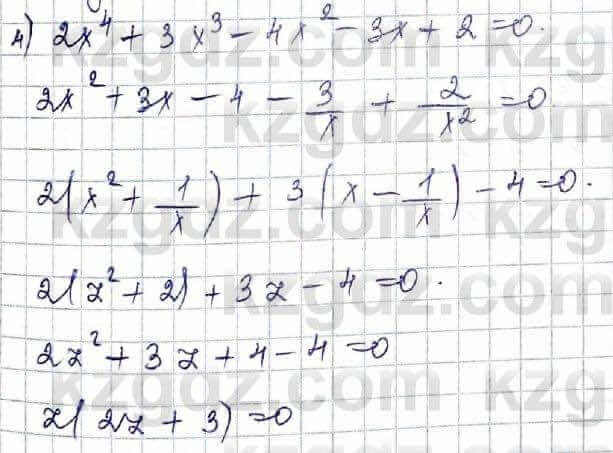 4) 2x⁴ + 3x³ - 4x² - 3x + 2 = 0.
2x² + 3x - 4 - 3/x + 2/x² = 0
2(x² + 1/x) + 3(x - 1/x) - 4 = 0.
2(z² + 2) + 3z - 4 = 0.
2z² + 3z + 4 - 4 = 0
z(2z + 3) = 0
kzgdz.com